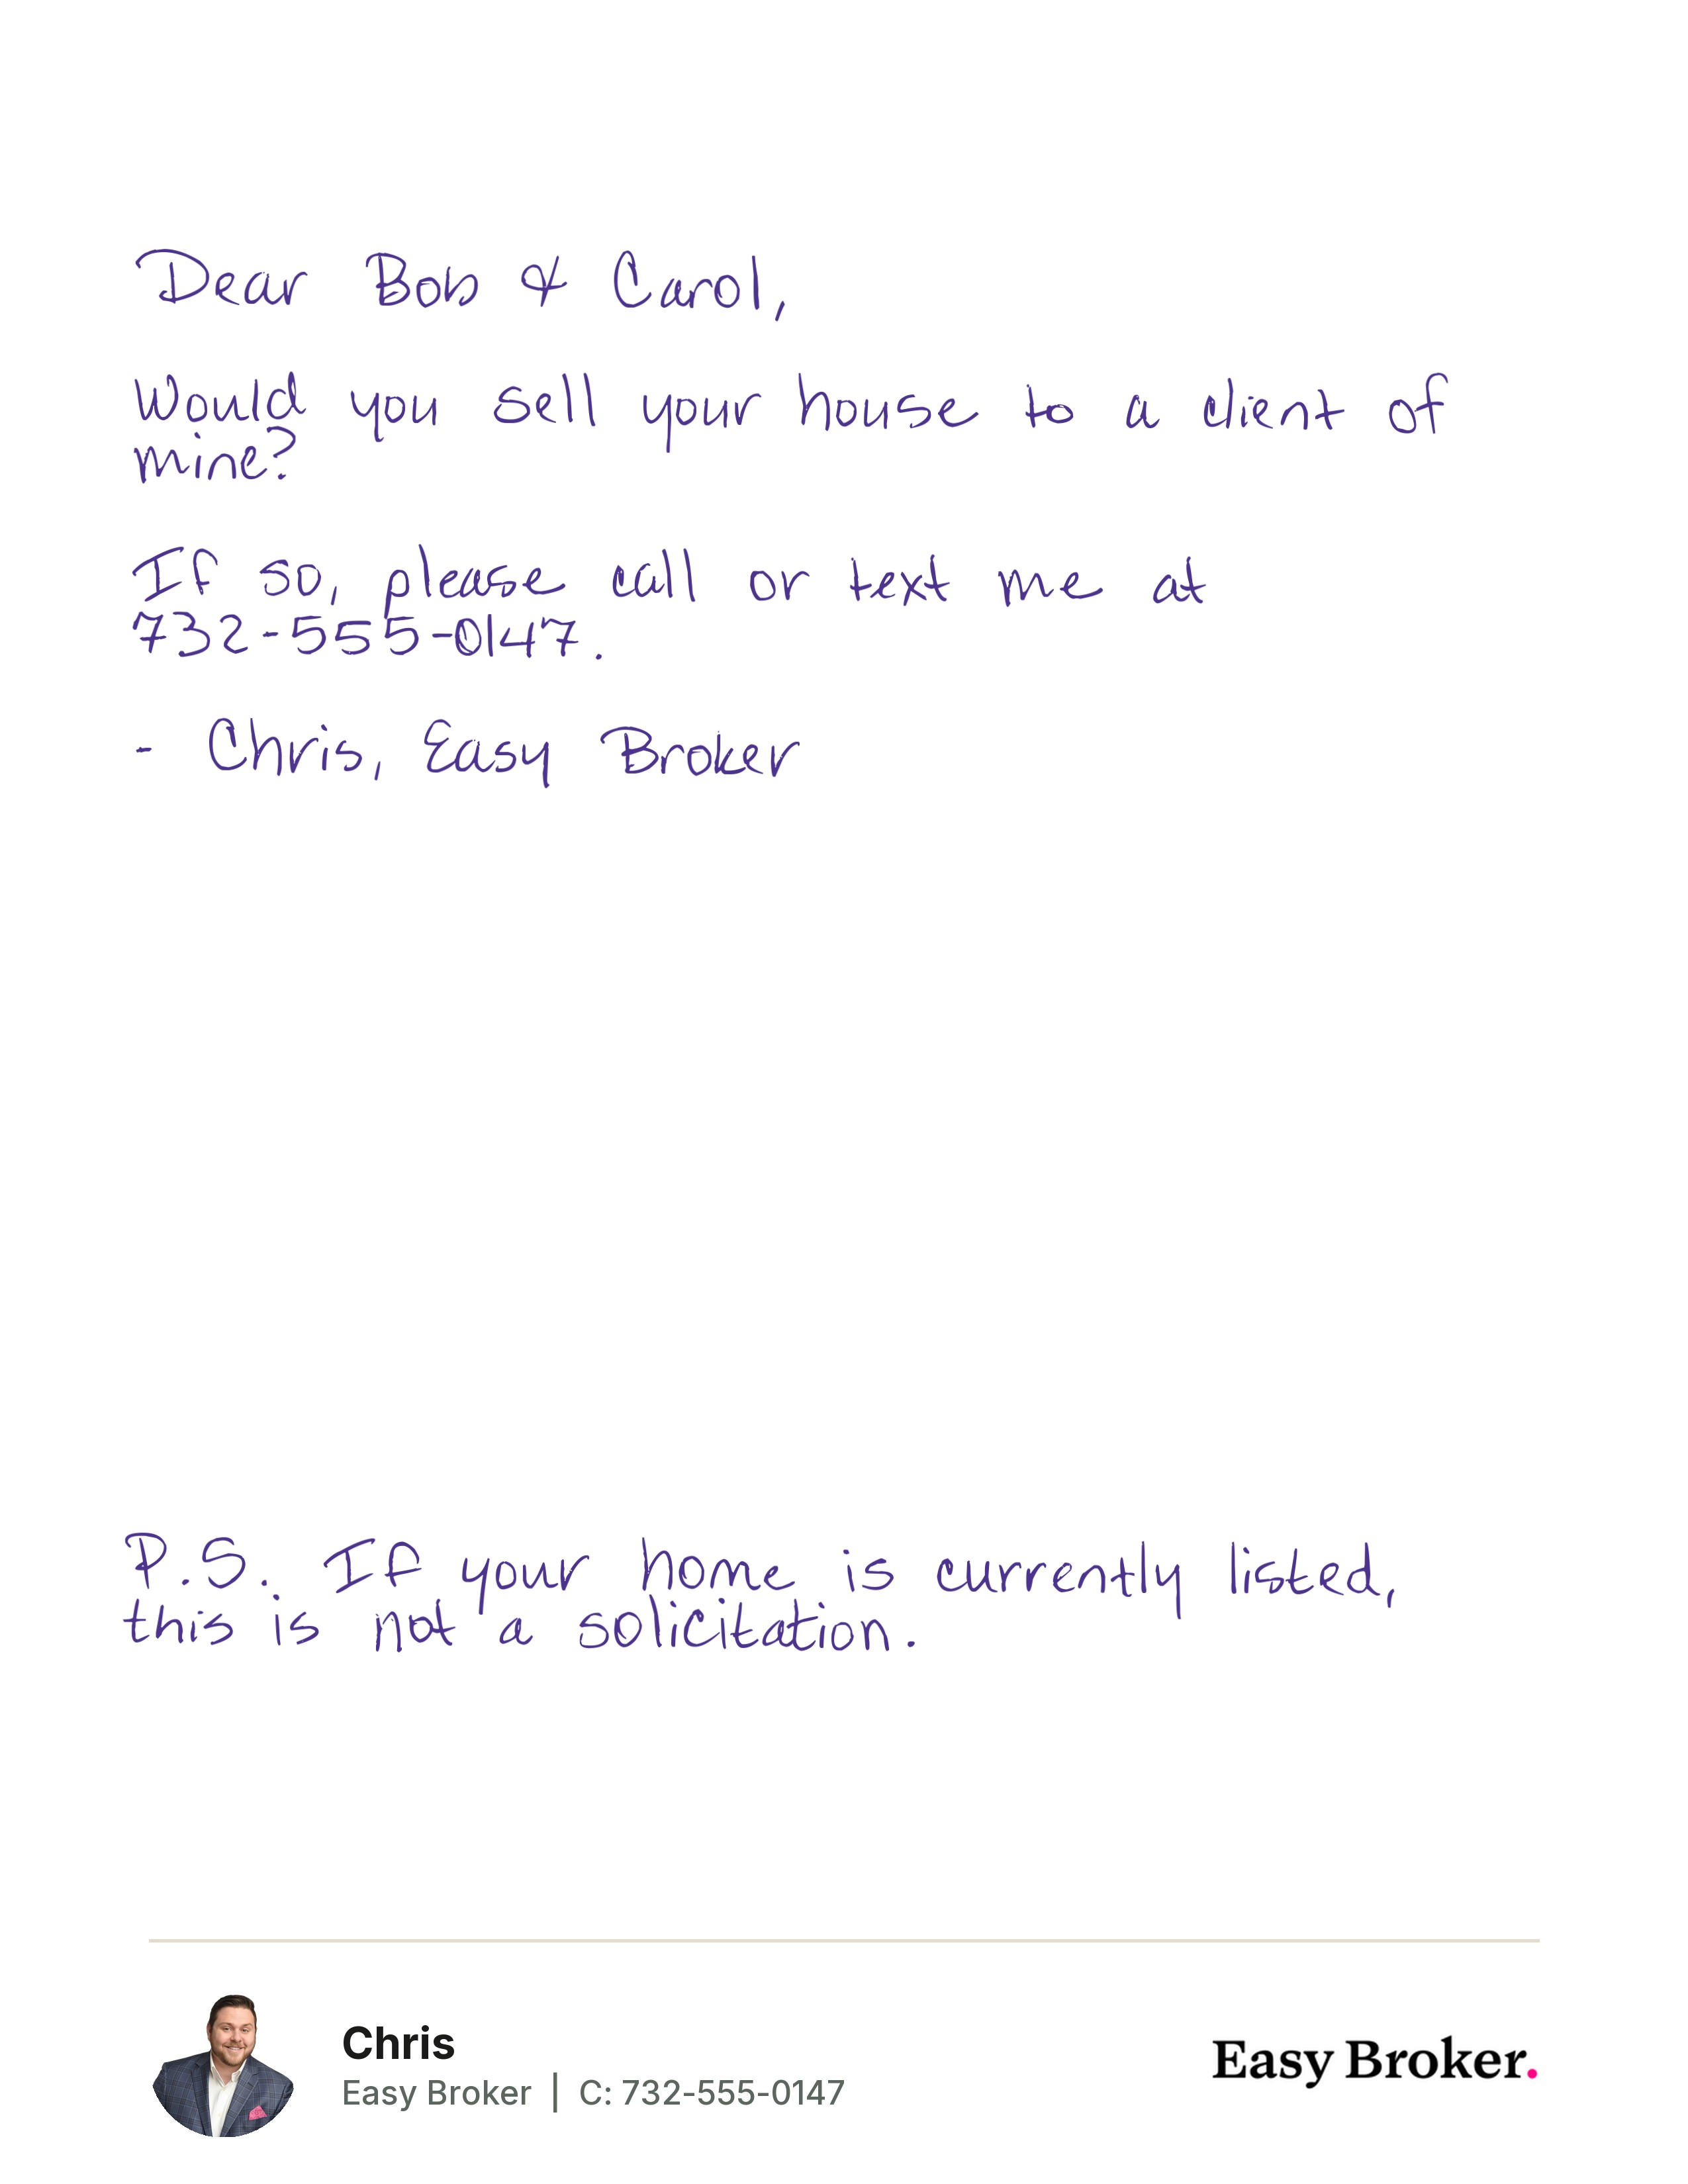 Dear Bob & Carol,
Would you sell your house to a client of
mine?
If so, please call or text me at
732-555-0147.
- Chris, Easy Broker
P.S. If your home is currently listed,
this is not a solicitation.
Chris
Easy Broker | C: 732-555-0147
Easy Broker.